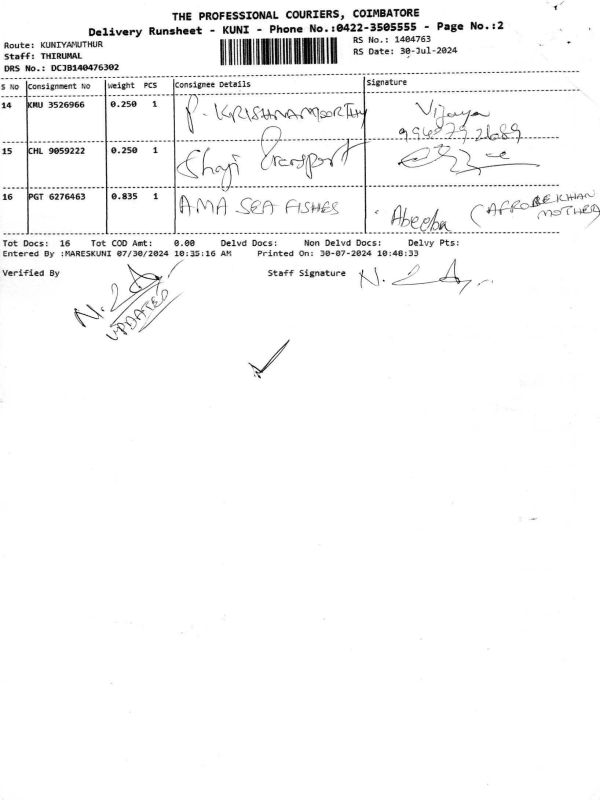 THE PROFESSIONAL COURIERS, COIMBATORE
Delivery Runsheet - KUNI - Phone No.:0422-3505555 - Page No.:2
Route: KUNIYAMUTHUR
RS No.: 1404763
Staff: THIRUMAL
RS Date: 30-Jul-2024
DRS No.: DCJB140476302
S No Consignment No Weight PCS Consignee Details Signature
14 KMU 3526966 0.250 1 P. KRISHNAMOORTHY Vijaya
15 CHL 9059222 0.250 1 Shaji Transport
16 PGT 6276463 0.835 1 AMA SEA FISHES Abeeba
MOTHER)
Tot Docs: 16 Tot COD Amt: 0.00 Delvd Docs: Non Delvd Docs: Delvy Pts:
Entered By :MARESKUNI 07/30/2024 10:35:16 AM Printed On: 30-07-2024 10:48:33
Verified By Staff Signature
UPDATED